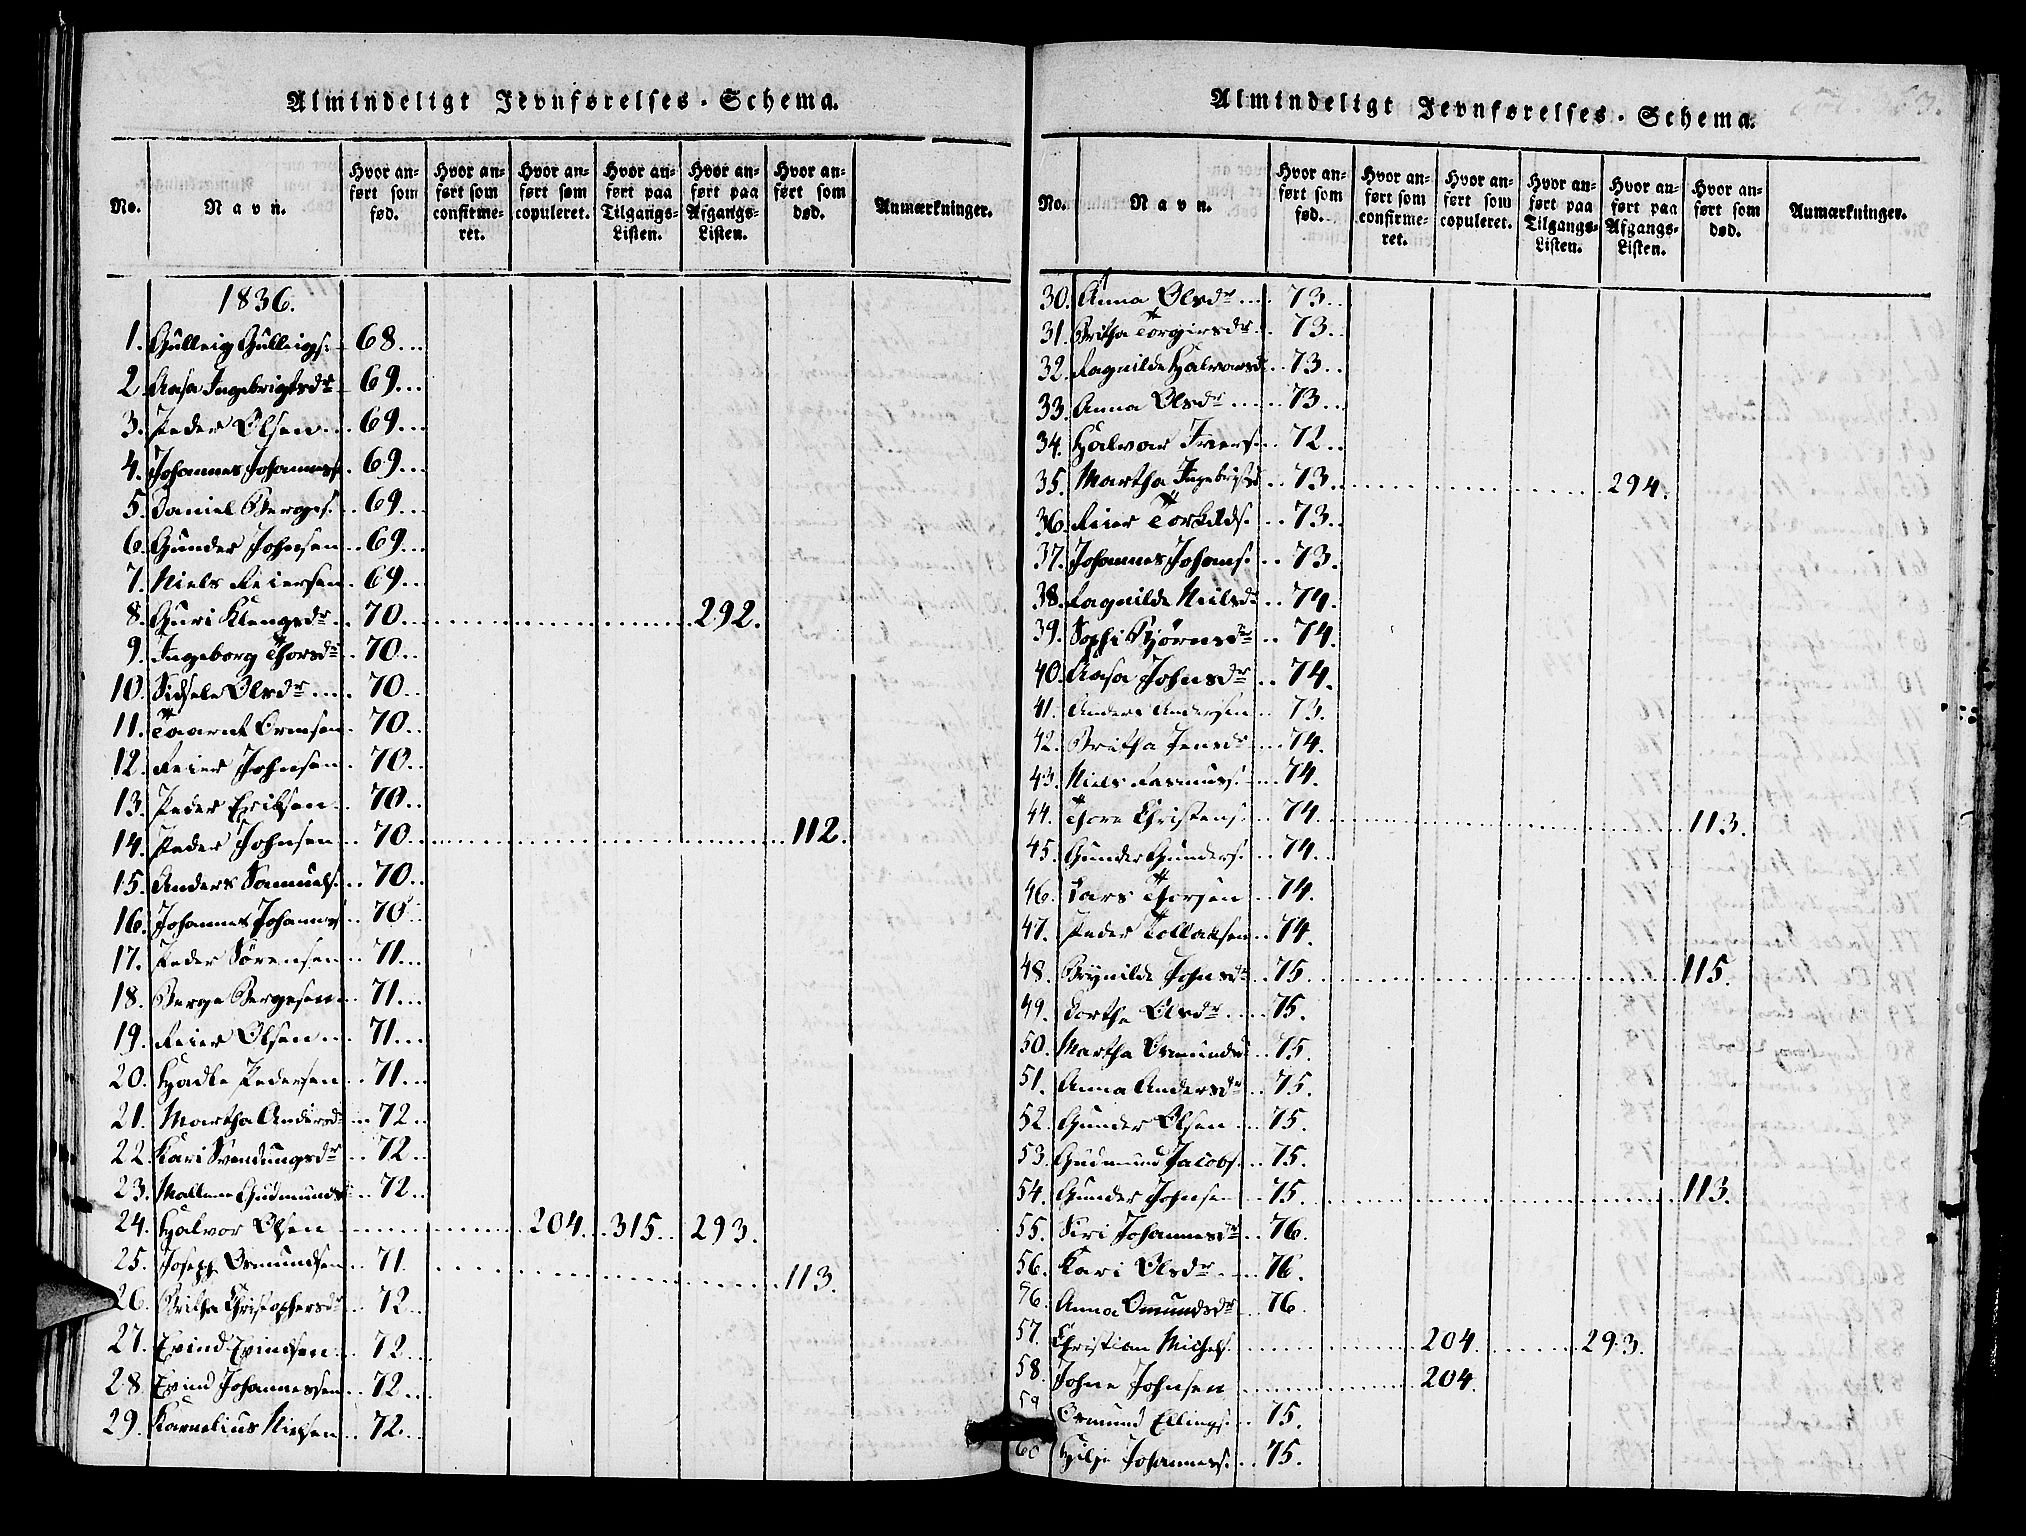 Almindeligt Jevnførelses-Schema.
No. Navn. Hvor anført som fød. Hvor anført som confirmeret. Hvor anført som copuleret. Hvor anført paa Tilgangs-Listen. Hvor anført paa Afgangs-Listen. Hvor anført som død. Anmærkninger.
1836.
1. Gulleig Gulleigs. 68...
2. Aasa Ingebrigtsdr 69...
3. Peder Olsen 69...
4. Johannes Johanness. 69...
5. Daniel Berges. 69...
6. Gunder Johnsen 69...
7. Niels Reiersen 69...
8. Guri Klengsdr 70 292.
9. Ingeborg Thorsdr 70..
10. Sidsele Olsdr 70..
11. Taarul Ormsen 70..
12. Reier Johnsen 70..
13. Peder Eriksen 70..
14. Peder Johnsen 70 112.
15. Anders Samuels. 70..
16. Johannes Johannes 70..
17. Peder Sörensen 71...
18. Berge Bergesen 71...
19. Reier Olsen 71...
20. Hadle Pedersen 71...
21. Martha Andersdr 72..
22. Kari Svendungsdr 72..
23. Mallene Gudmundsdr 72..
24. Halvor Olsen 204 315 293.
25. Joseph Osmundsen 71. 113.
26. Britha Christophersdr 72..
27. Evind Evindsen 72...
28. Evind Johannessen 72...
29. Kornelius Nielsen 72...
Almindeligt Jevnførelses-Schema.
No. Navn. Hvor anført som fød. Hvor anført som confirmeret. Hvor anført som copuleret. Hvor anført paa Tilgangs-Listen. Hvor anført paa Afgangs-Listen. Hvor anført som død. Anmærkninger.
30. Anna Olsdr 73..
31. Britha Torgersdr 73..
32. Ragnilde Halvorsdr 73..
33. Anna Olsdr 73..
34. Halvor Ivers. 72..
35. Martha Ingebrigtsd 73 294.
36. Reier Torkilds. 73..
37. Johannes Johans. 73.
38. Ragnilde Nielsdr 74.
39. Sophi Bjørnsdr 74.
40. Aasa Johnsdr 74.
41. Anders Andersen 73.
42. Britha Jensdr 74.
43. Niels Rasmuss. 74.
44. Thore Christens. 74. 113.
45. Gunder Gunders. 74..
46. Lars Thorsen 74.
47. Peder Tollaksen 74.
48. Brynilde Johnsdr 75. 115.
49. Dorthe Olsdr 75.
50. Martha Osmundsd 75.
51. Anna Andersdr 75.
52. Gunder Olsen 75.
53. Gudmund Jacobs. 75.
54. Gunder Johnsen 75. 113.
55. Siri Johannesdr 76.
56. Kari Olsdr 76.
76. Anna Omundsdr 76.
57. Christian Michels. 204 293.
58. Johne Johnsen 204.
59 Osmund Ellings. 75.
60 Hilje Johanness. 75.